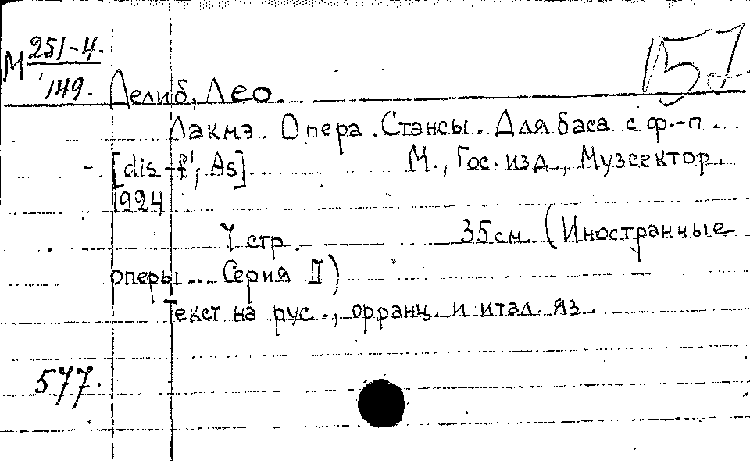 М 251-4.
149.
157
Делиб, Лео.
Лакмэ. Опера. Стансы. Для баса с ф.-п.
[dis-f', As] М., Гос. изд., Музсектор.
1924
7 стр. 35 см. (Иностранные
оперы. Серия II)
Текст на рус., франц. и итал. яз.
577.